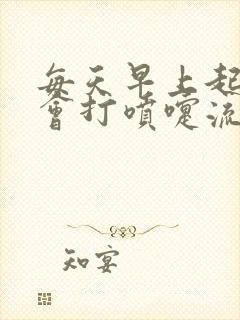 每天早上起
会打喷嚏流
知宴